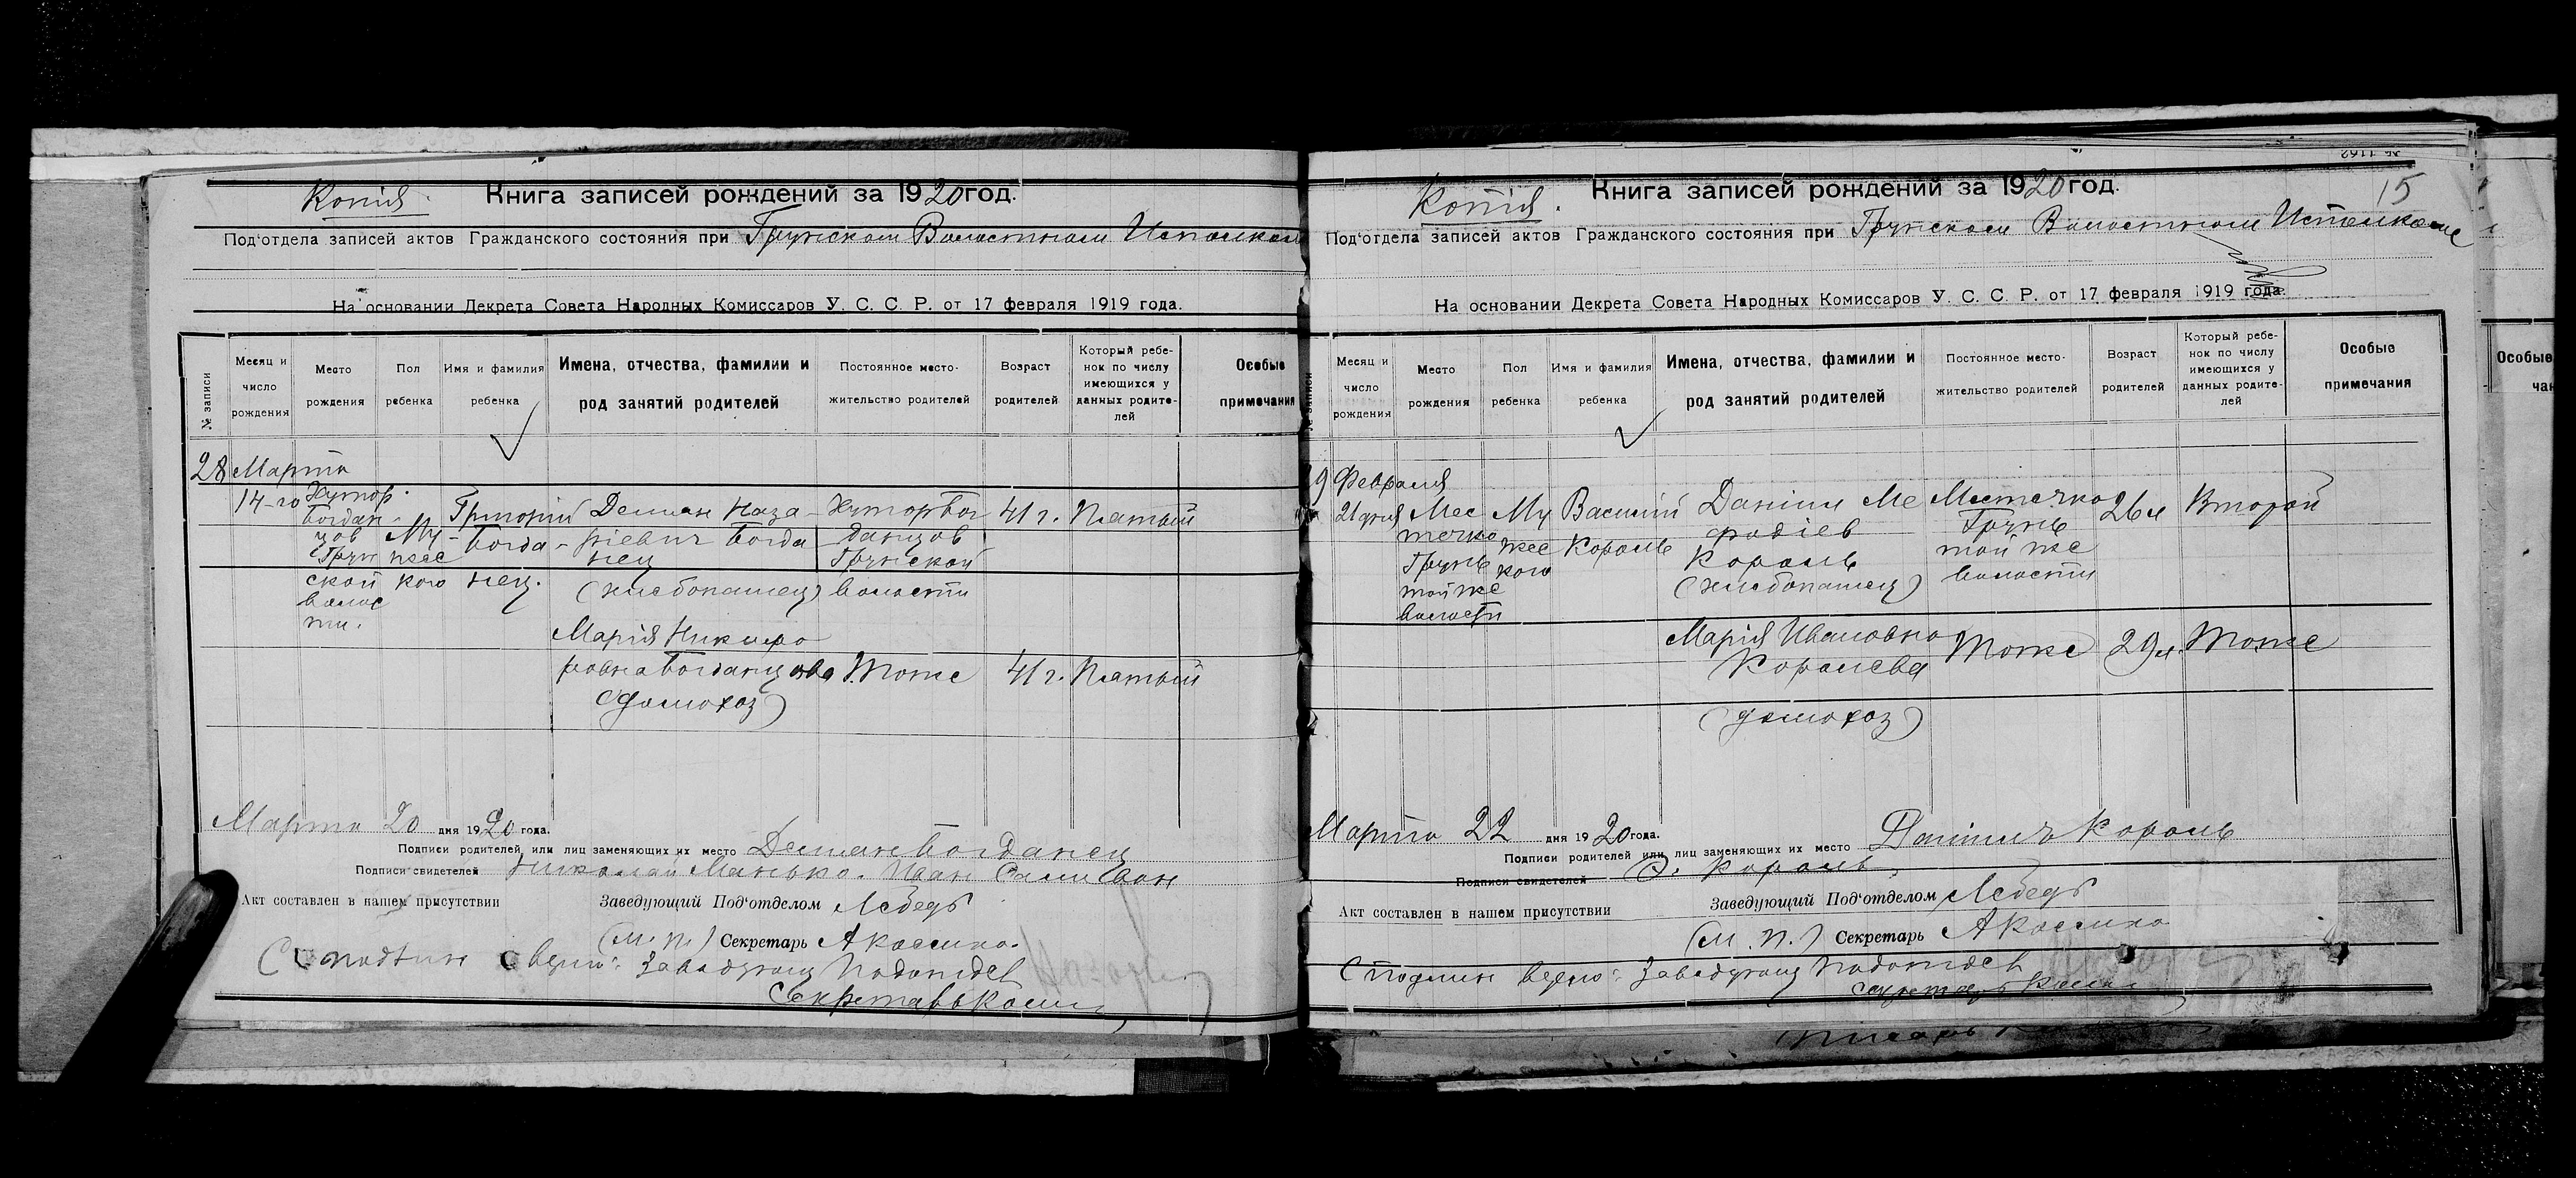 Копія. Книга записей рождений за 1920 год.
Под'отдела записей актов Гражданского состояния при Грунском Волостном Исполкоме
На основании Декрета Совета Народных Комиссаров У. С. С. Р. от 17 февраля 1919 года.
№ записи
Месяц и число рождения
Место рождения
Пол ребенка
Имя и фамилия ребенка
Имена, отчества, фамилии и род занятий родителей
Постоянное место-жительство родителей
Возраст родителей
Который ребе-нок по числу имеющихся у данных родите-лей
Особые примечания
28 Марта
14-го Хутор
Богдан-
цов
Грун
ской
волос
ти.
Му-
жес
кого
Григорій
Богда-
нец.
Демян Наза-
ріевич Богда
нец
(хлебопашец)
Хутор Бог
данцов
Грунской
волости
41 г. Пятый
Марія Никифо
ровна Богданцова Тоже 41 г. Пятый
(домохоз)
Марта 20 дня 1920 года.
Подписи родителей или лиц заменяющих их место Демян Богданец
Подписи свидетелей Николай Манько. Иван
Акт составлен в нашем присутствии Заведующий Под'отделом Лебедь
(М. П.) Секретарь
С верно: Заведующ Подотдел
Секретарь
Копія. Книга записей рождений за 1920 год.
15
Под'отдела записей актов Гражданского состояния при Грунском Волостном Исполкоме
На основании Декрета Совета Народных Комиссаров У. С. С. Р. от 17 февраля 1919 года.
№ записи
Месяц и число рождения
Место рождения
Пол ребенка
Имя и фамилия ребенка
Имена, отчества, фамилии и род занятий родителей
Постоянное место-жительство родителей
Возраст родителей
Который ребе-нок по числу имеющихся у данных родите-лей
Особые примечания
9 Февраля
21 дня
Мес
течко
Грунь
той же
волости
Му
жес
кого
Василий
Король
Даніил Ме
фодіев
Король
(хлебопашец)
Местечко
Грунь
той же
волости
26 л Второй
Марія Ивановна
Королева
Тоже 29 л. Тоже
(домохоз)
Марта 22 дня 1920 года.
Подписи родителей или лиц заменяющих их место Даниил Король
Подписи свидетелей Король
Акт составлен в нашем присутствии Заведующий Под'отделом Лебедь
(М. П.) Секретарь
С подлин верно: Заведующ Подотдел
Секретарь
Особые